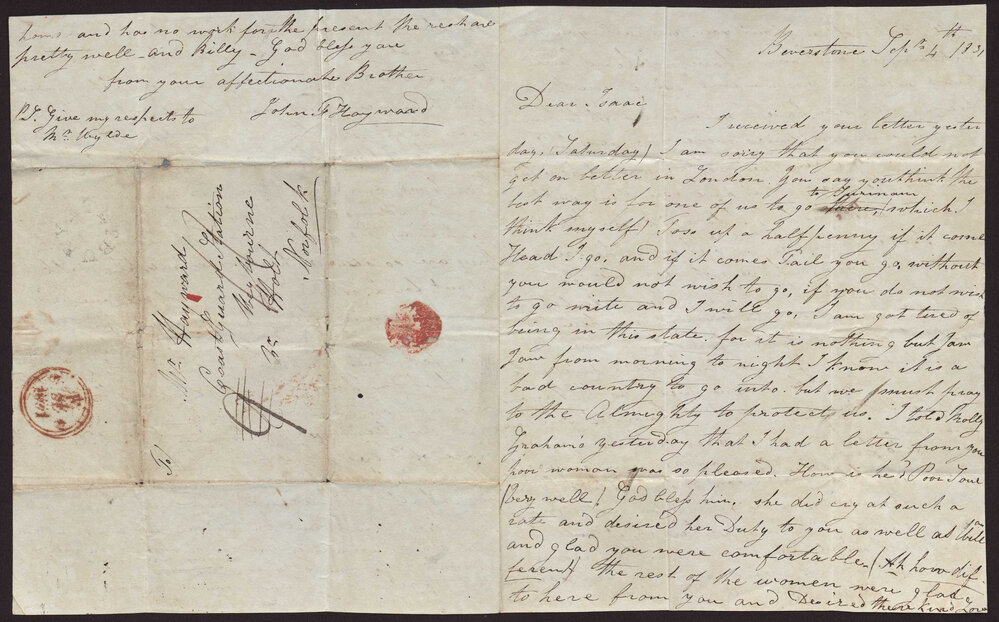 Beverstone Sept 4th 1831
Dear Isaac
I received your letter yester
day, (Saturday) I am sorry that you could not
get on better in London. You say you think the
best way is for one of us to go to Surinam (which I
think myself) Toss up a half penny if it come
Head I go, and if it comes Tail you go, without
you would not wish to go, if you do not wish
to go write and I will go, I am got tired of
being in this state. for it is nothing but Jaw
Jaw from morning to night I know it is a
bad country to go into. but we must pray
to the Almighty to protect us. I told Molly
Graham's yesterday that I had a letter from you
poor woman was so pleased. How is he? Poor Soul
(Very well) God bless him, she did cry at such a
rate and desired her Duty to you as well as
and glad you were comfortable. (Ah how dif-
ferent) the rest of the women were glad
to here from you and Desired there kind Love
home and has no work for the present the rest are
pretty well and Billy - God bless you
from your affectionate Brother
John F Hayward
P.S. Give my respects to
Mr. Wylde
To
Mr. Hayward,
Coast Guard Station
Weybourne
Nr Holt
Norfolk
9